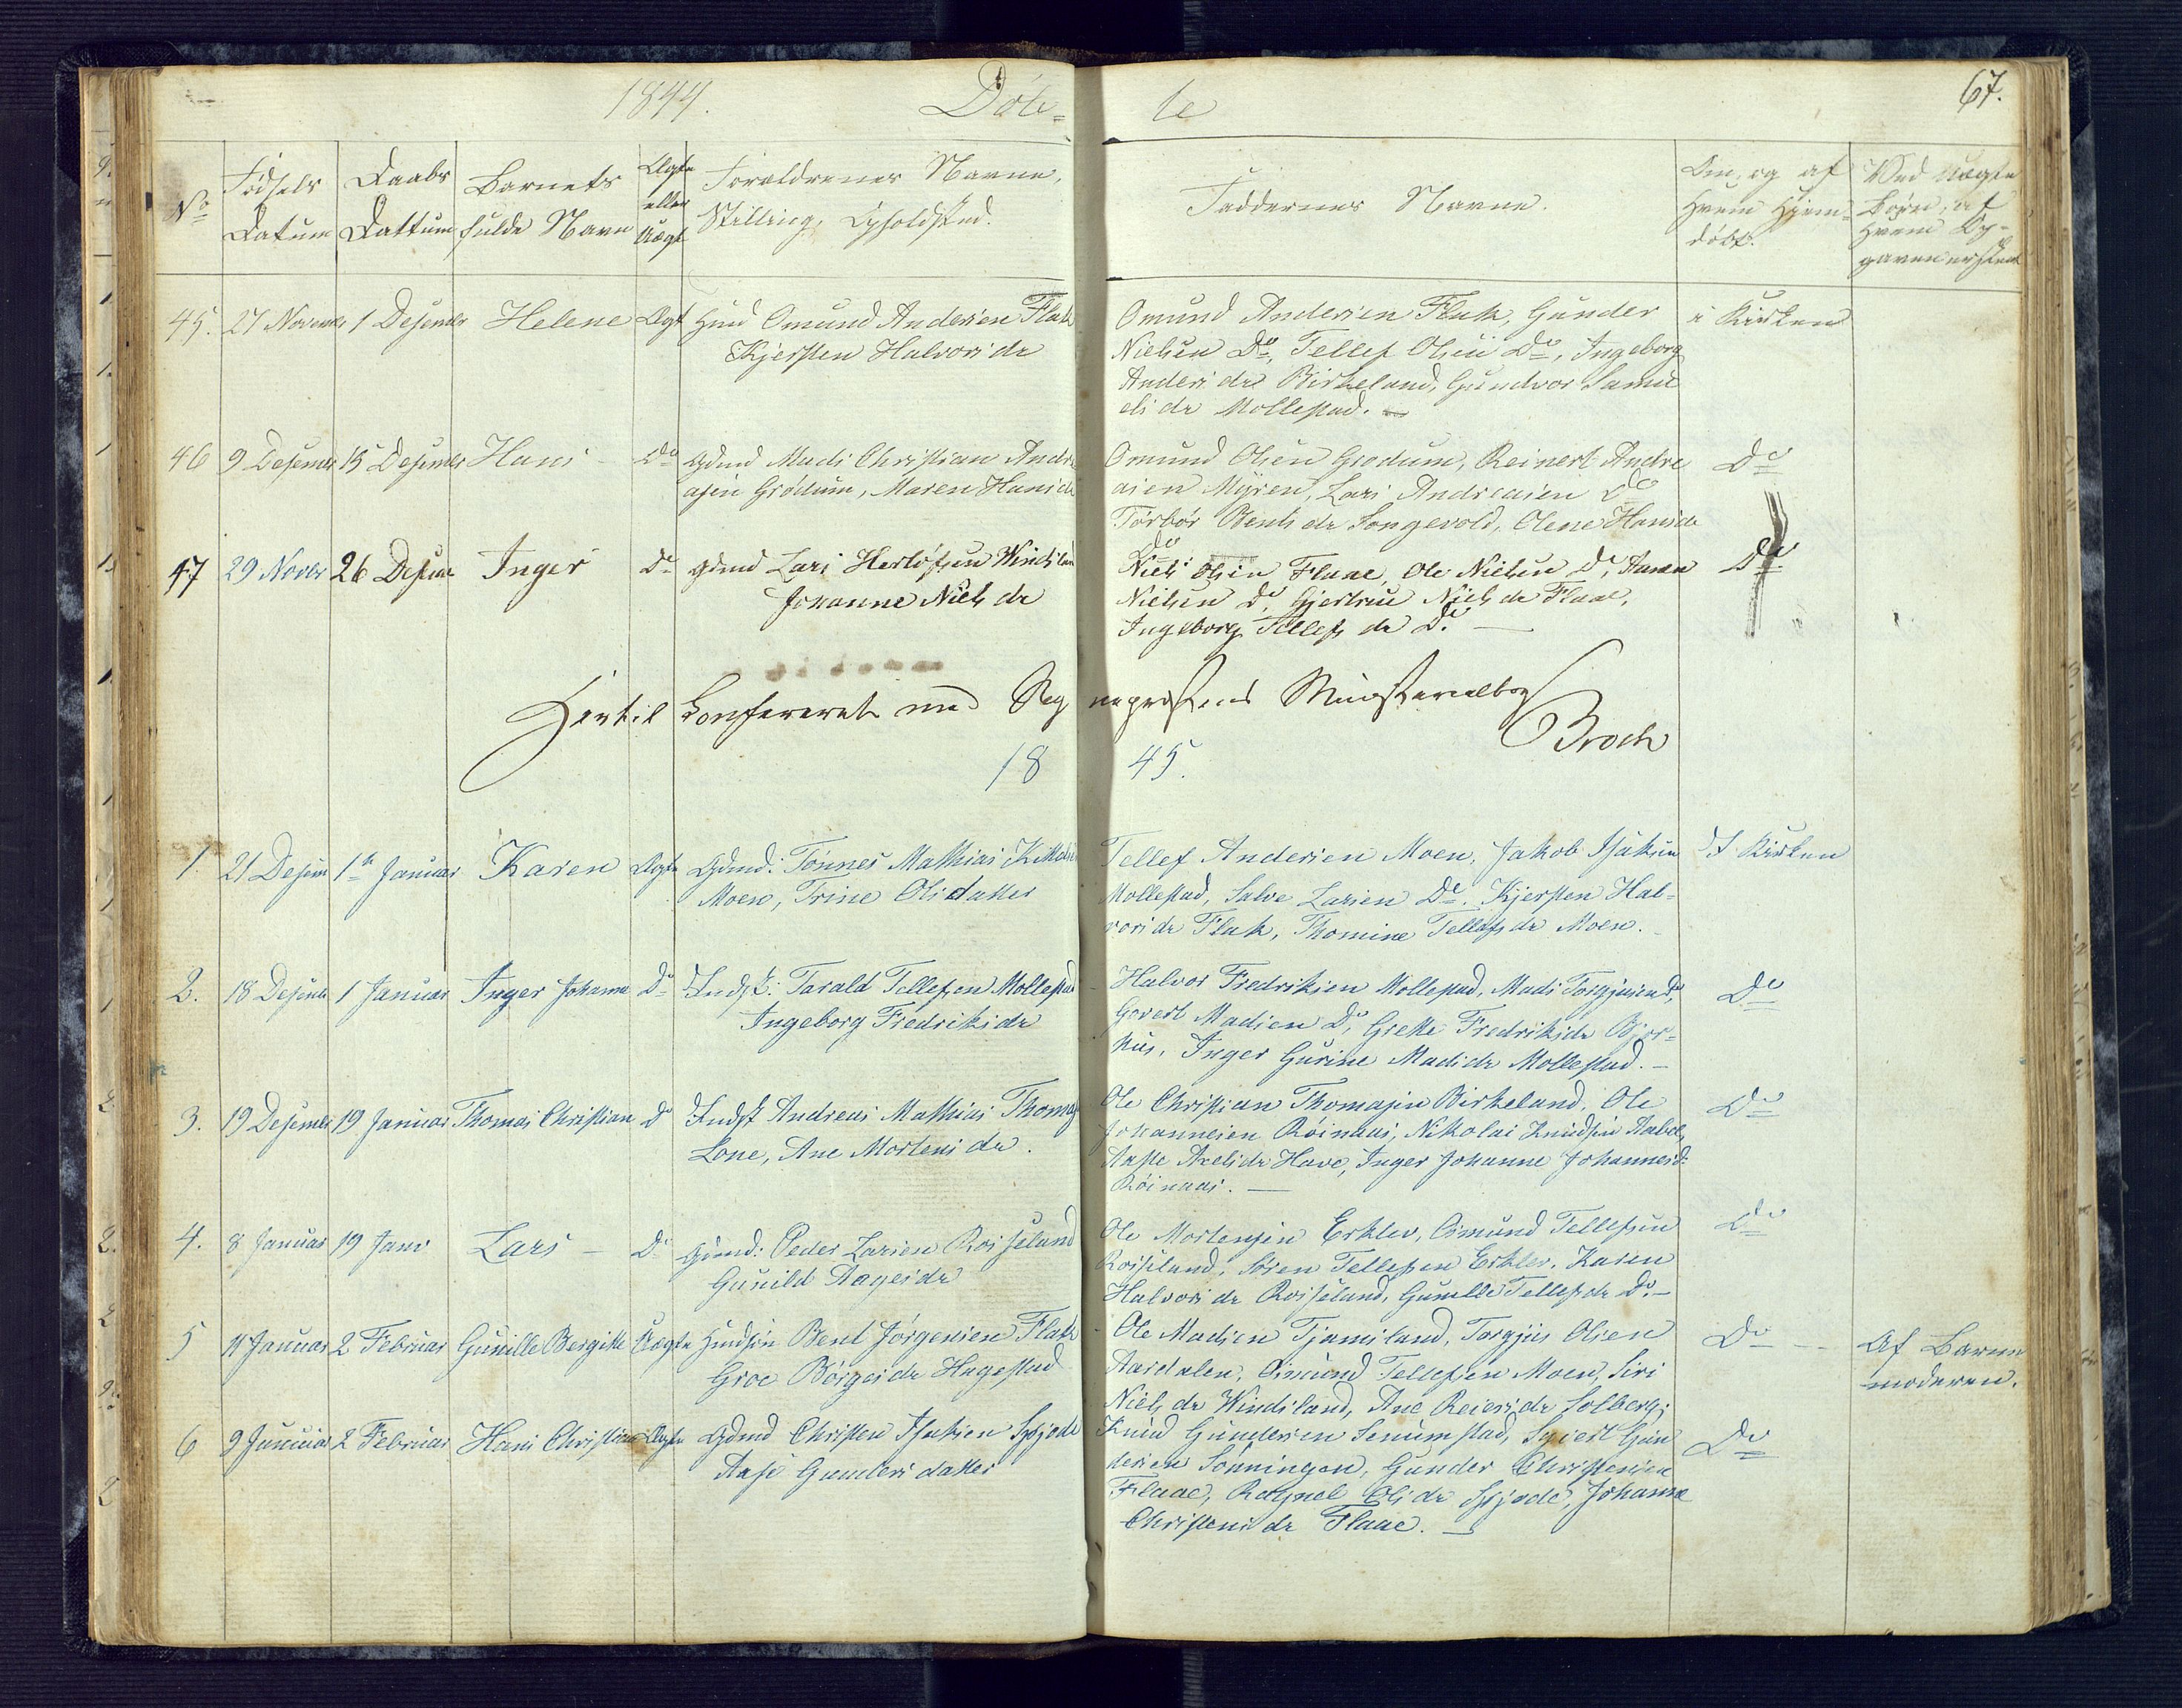 1844. Døb= te 67.
No Fødsels Datum Daabs Dattum Barnets fulde Navn Ægte eller Uægt Forældrenes Navne, Stilling, Opholdsted. Faddernes Navne. Om, og af Hvem Hjem= døbt. Ved Uægte Børn, af Hvem Op= gaven er skeed
45. 27 Novembr 1 Desembr Helene Ægt Huusd Omund Andersen Flak
Kjersten Halvorsdr
Omund Andersen Flak, Gunder
Nielsen Do, Tellef Olsen Do, Ingeborg
Andersdr Birkeland, Gundvor Samu
elsdr Mollestad.
i Kirken
46 9 Desembr 15 Desembr Hans Do Gdmd Mads Christian Andre
asen Grødum, Maren Hansdr
Omund Olsen Grødum, Reinert Andre
asen Myren, Lars Andreasen Do
Torbør Bentsdr Songevold, Olene Hansdr
Do
Do
47 29 Novbr 26 Desem Inger Do Gdmd Lars Herløfsen Windsland
Johanne Nielsdr
Niels Olsen Flaae, Ole Nielsen Do, Aanen
Nielsen Do, Gjertrue Nielsdr Flaae,
Ingeborg Tellefsdr Do.
Do
Hertil Confereret med Sognepræstens Ministerialbog
Broch
1845.
1. 21 Desem 1te Januar Karen Ægte Gdmd: Tønnes Mathias
Moen, Trine Olsdatter
Tellef Andersen Moen, Jakob Isaksen
Mollestad, Salve Larsen Do. Kjersten Hal=
vorsdr Flak, Thomine Tellefsdr Moen.
I Kirken
2. 18 Desembr 1 Januar Inger Johanne Do Indst: Tarald Tellefsen Mollestad
Ingeborg Fredriksdr
Halvor Fredriksen Mollestad, Mads Torgjusen Do,
Govert Madsen Do, Grette Fredriksdr Bjor=
hus, Inger Gurine Madsdr Mollestad.
Do
3. 19 Desembr 19 Januar Thomas Christian Do Indst Andreas Mathias Thomas
Lone, Ane Mortensdr.
Ole Christian Thomasen Birkeland, Ole
Johannesen Røinaas, Nikolai Knudsen Aabel,
Aaste Axelsdr Have, Inger Johanne Johannesd:
Røinaas.
Do
4. 8 Januar 19 Janr Lars Do Gdmd: Peder Larsen Roiseland
Gunild Aagesdr
Ole Mortensen Erklev, Osmund Tellefsen
Roiseland, Søren Tellefsen Erklev, Karen
Halvorsdr Roiseland, Gunelle Tellefsdr Do.
Do
5 11 Januar 2 Februar Gunille Bergitte Uægte Huusd Bent Jørgensen Flak
Groe Børgesdr Hagestad
Ole Madsen Tjamsland, Torgjus Olsen
Aardalen, Osmund Tellefsen Moen, Siri
Nielsdr Windsland, Ane Reiersdr Solberg.
Do
Af Barne
moderen.
6 9 Januar 2 Februar Hans Christian Ægte Gdmd Christen Isaksen Spjode
Aase Gundersdatter
Knud Gundersen Senumstad, Sjvert Gun
dersen Sønningen, Gunder Christensen
Flaae, Ragnel Olsdr Spjode, Johanne
Christensdr Flaae.
Do